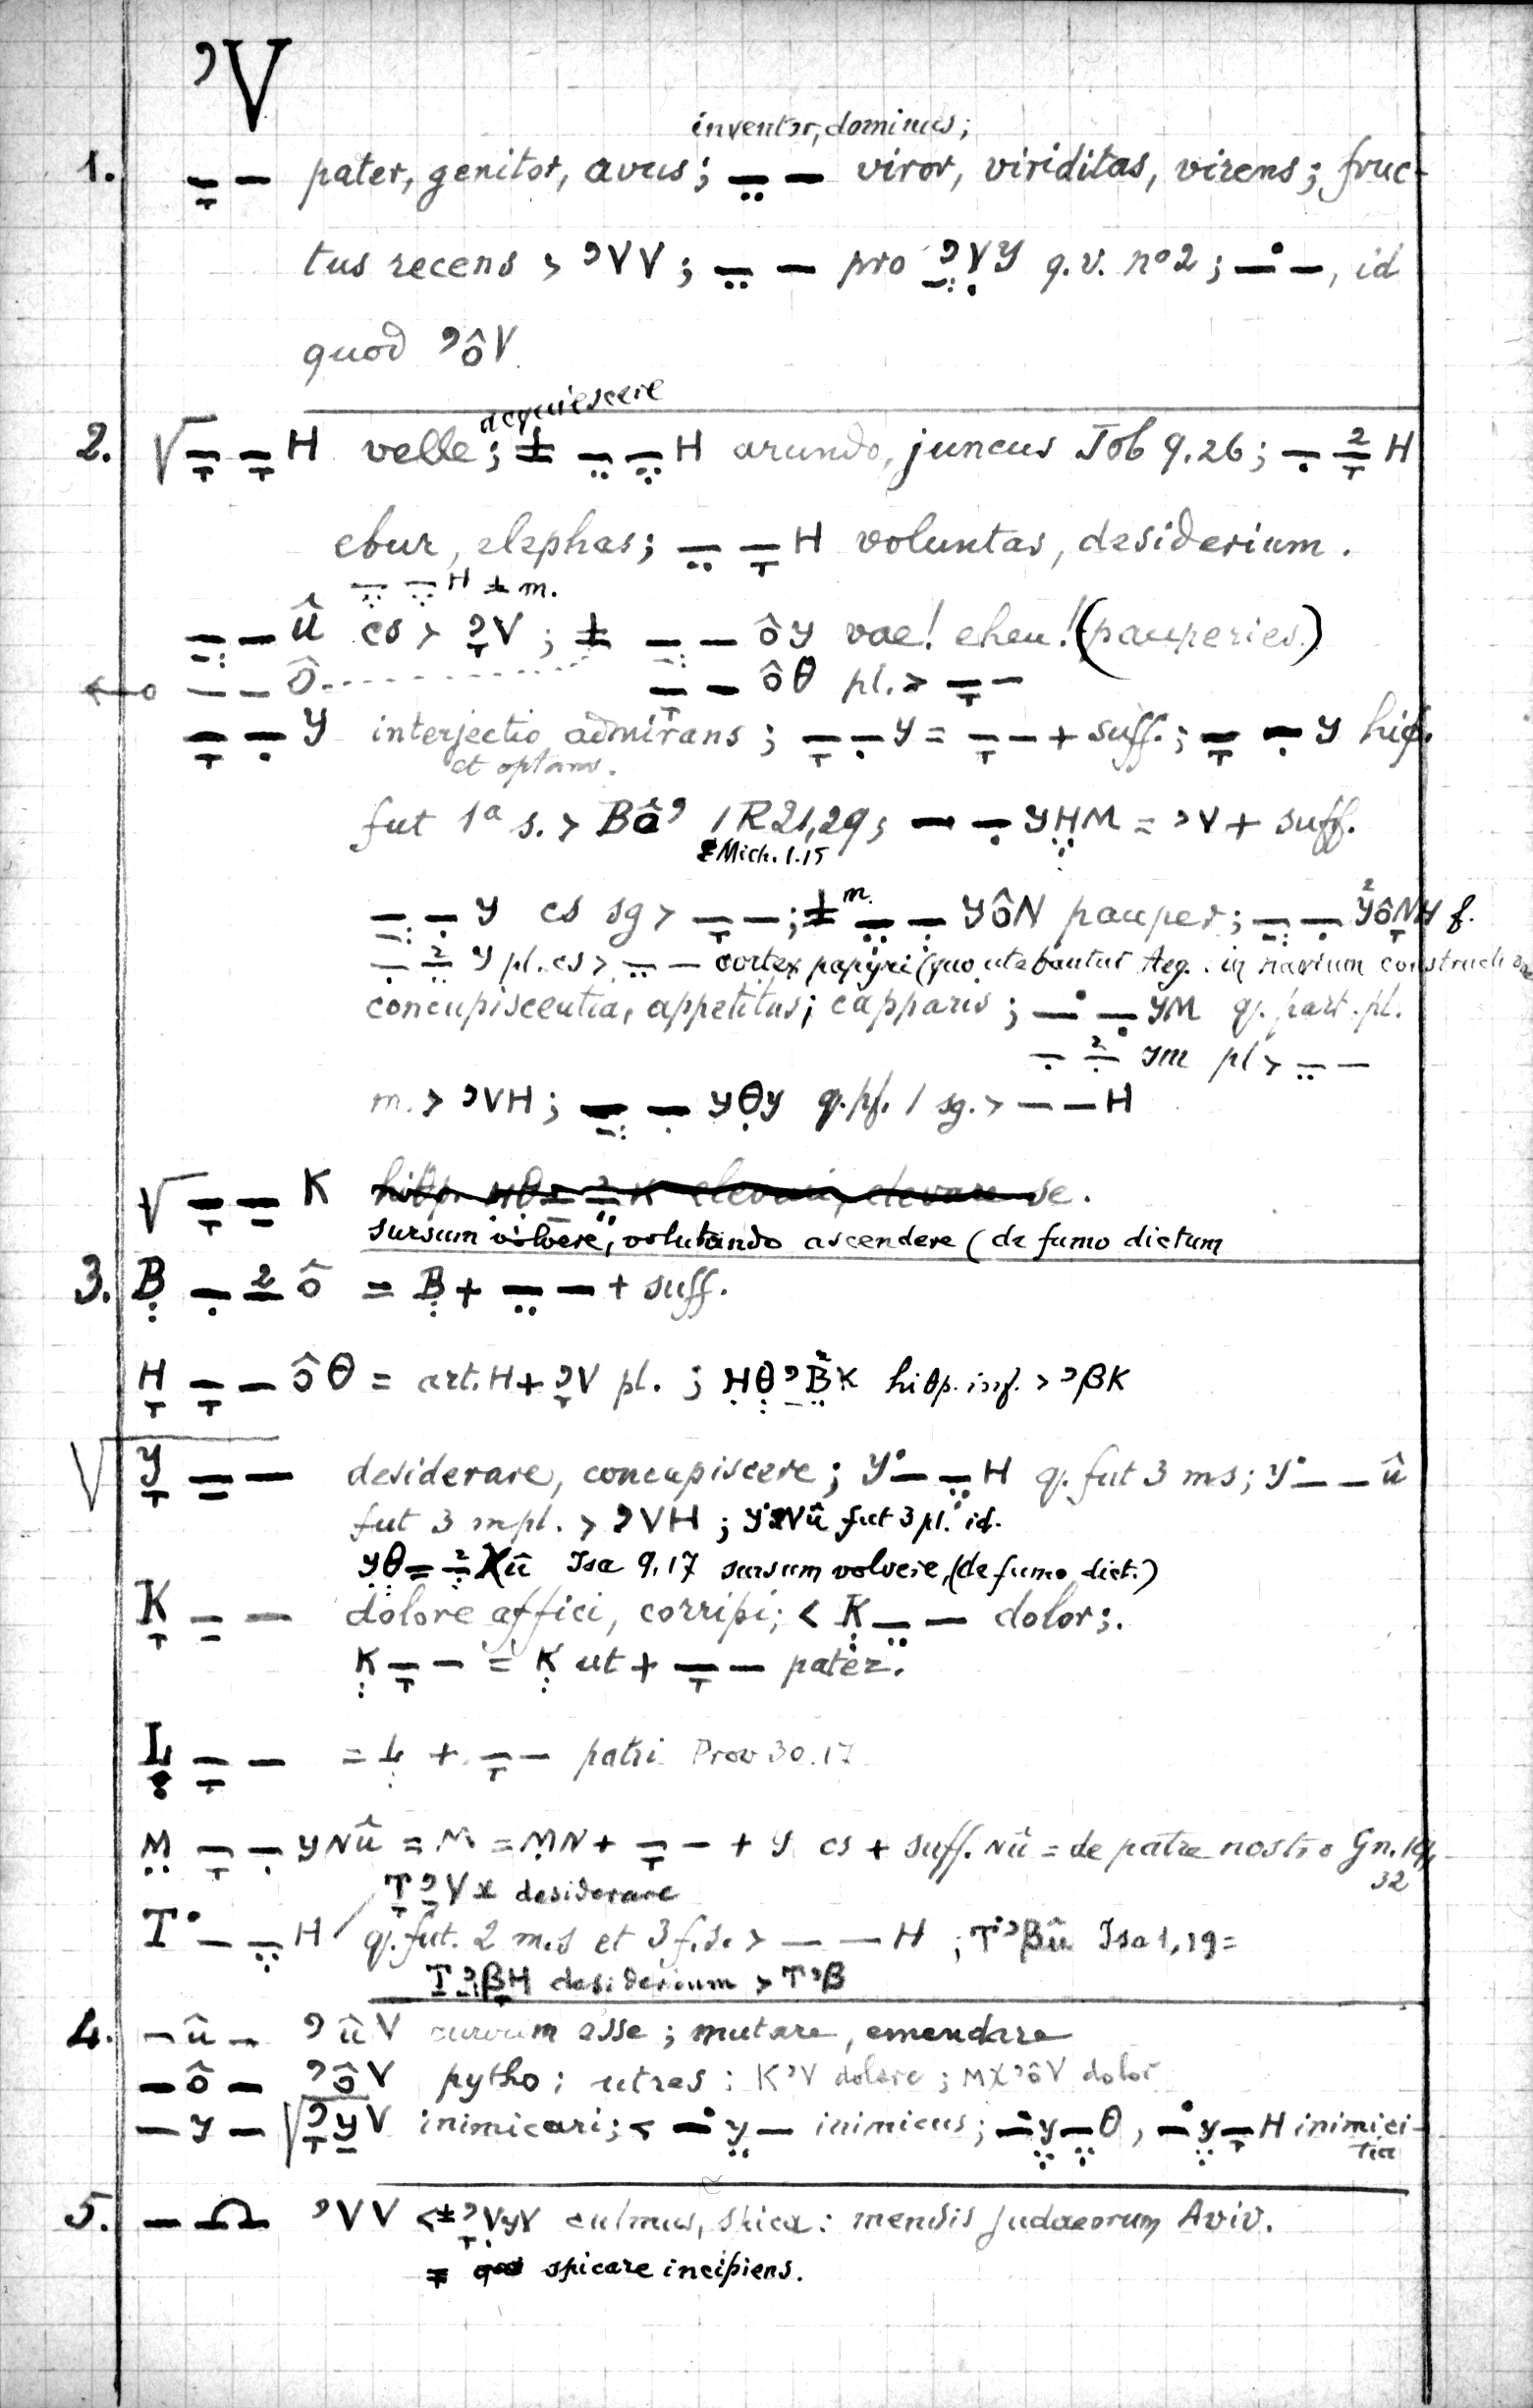 ʾV
inventor, dominus;
1. — — pater, genitor, avus; — — viror, viriditas, virens; fruc-
tus recens > ʾVV; — — pro ʾVY q.v. nº 2; — —, id
quod ʾôV
acquiescere
2. √— — H velle; ± — — H arundo, juncus Job 9.26; — 2 H
ebur, elephas; — — H voluntas, desiderium.
— — H ± m.
— — û cs > ʾV; ± — — ôy vae! eheu! (pauperies.)
— — ô — — ôθ pl. > — —
— — y interjectio admirans; — — y = — — + suff.; — — y hif.
et optans.
fut 1ª s. > Bâʾ 1R21,29; — — yHM = ʾV + suff.
Mich. 1.15
— — y cs sg > — —; ± m. — — yôN pauper; — — yôNH f.
— 2 y pl. cs > — — cortex papyri (quo utebantur Aeg. in navium constructione
concupiscentia, appetitus; capparis; — — yM q. part. pl.
— 2 ym pl > — —
m. > ʾVH; — — yθy q. pf. 1 sg. > — — H
√— — K
sursum volvere, volutando ascendere (de fumo dictum
3. B — 2 ô = B + — — + suff.
H — — ôθ = art. H + ʾV pl.; HθʾBK hiθp. inf. > ʾβK
√y — — desiderare, concupiscere; y — — H q. fut 3 ms; y — — û
fut 3 mpl. > ʾVH; yʾVû fut 3 pl. id.
yθ — 2 Kû Isa 9.17 sursum volvere, (de fumo dict.)
K — — dolore affici, corripi; < K — — dolor;.
K — — = K ut + — — pater.
L — — = L + — — patri Prov 30.17
M — — yNû = M = MN + — — + y cs + suff. Nû = de patre nostro Gn. 19,
32
TʾV desiderare
T — — H q. fut. 2 m.s et 3 f.s. > — — H; Tʾβû Isa 1,19 =
TʾβH desiderium > Tʾβ
4. — û — ʾûV curvum esse; mutare, emendare
— ô — ʾôV pytho; utres; KʾV dolere; MXʾôV dolor
— y — √ʾyV inimicari; < — y — inimicus; — y — θ, — y — H inimici-
tia
5. — Ω ʾVV < ± ʾVyV culmus, spica: mensis Judaeorum Aviv.
= spicare incipiens.